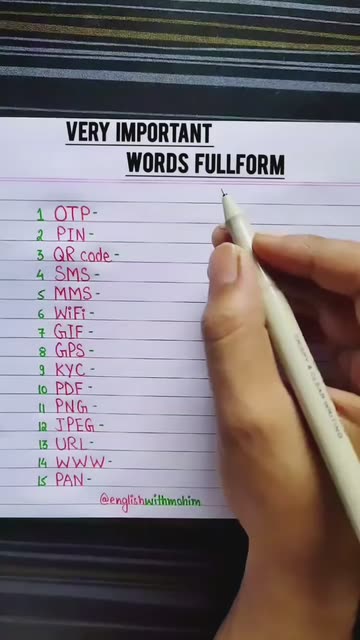 VERY IMPORTANT
WORDS FULLFORM
1 OTP-
2 PIN-
3 QR code-
4 SMS-
5 MMS-
6 WiFi-
7 GIF-
8 GPS-
9 KYC-
10 PDF-
11 PNG-
12 JPEG-
13 URL-
14 WWW-
15 PAN-
@englishwithmohim